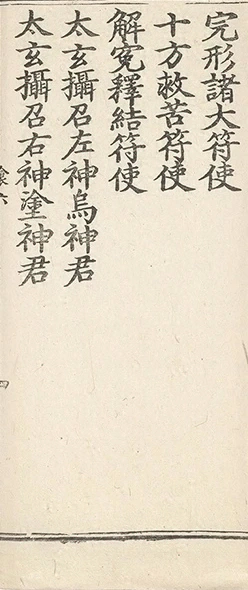 完形諸大符使
十方救苦符使
解冤釋結符使
太玄攝召左神烏神君
太玄攝召右神塗神君